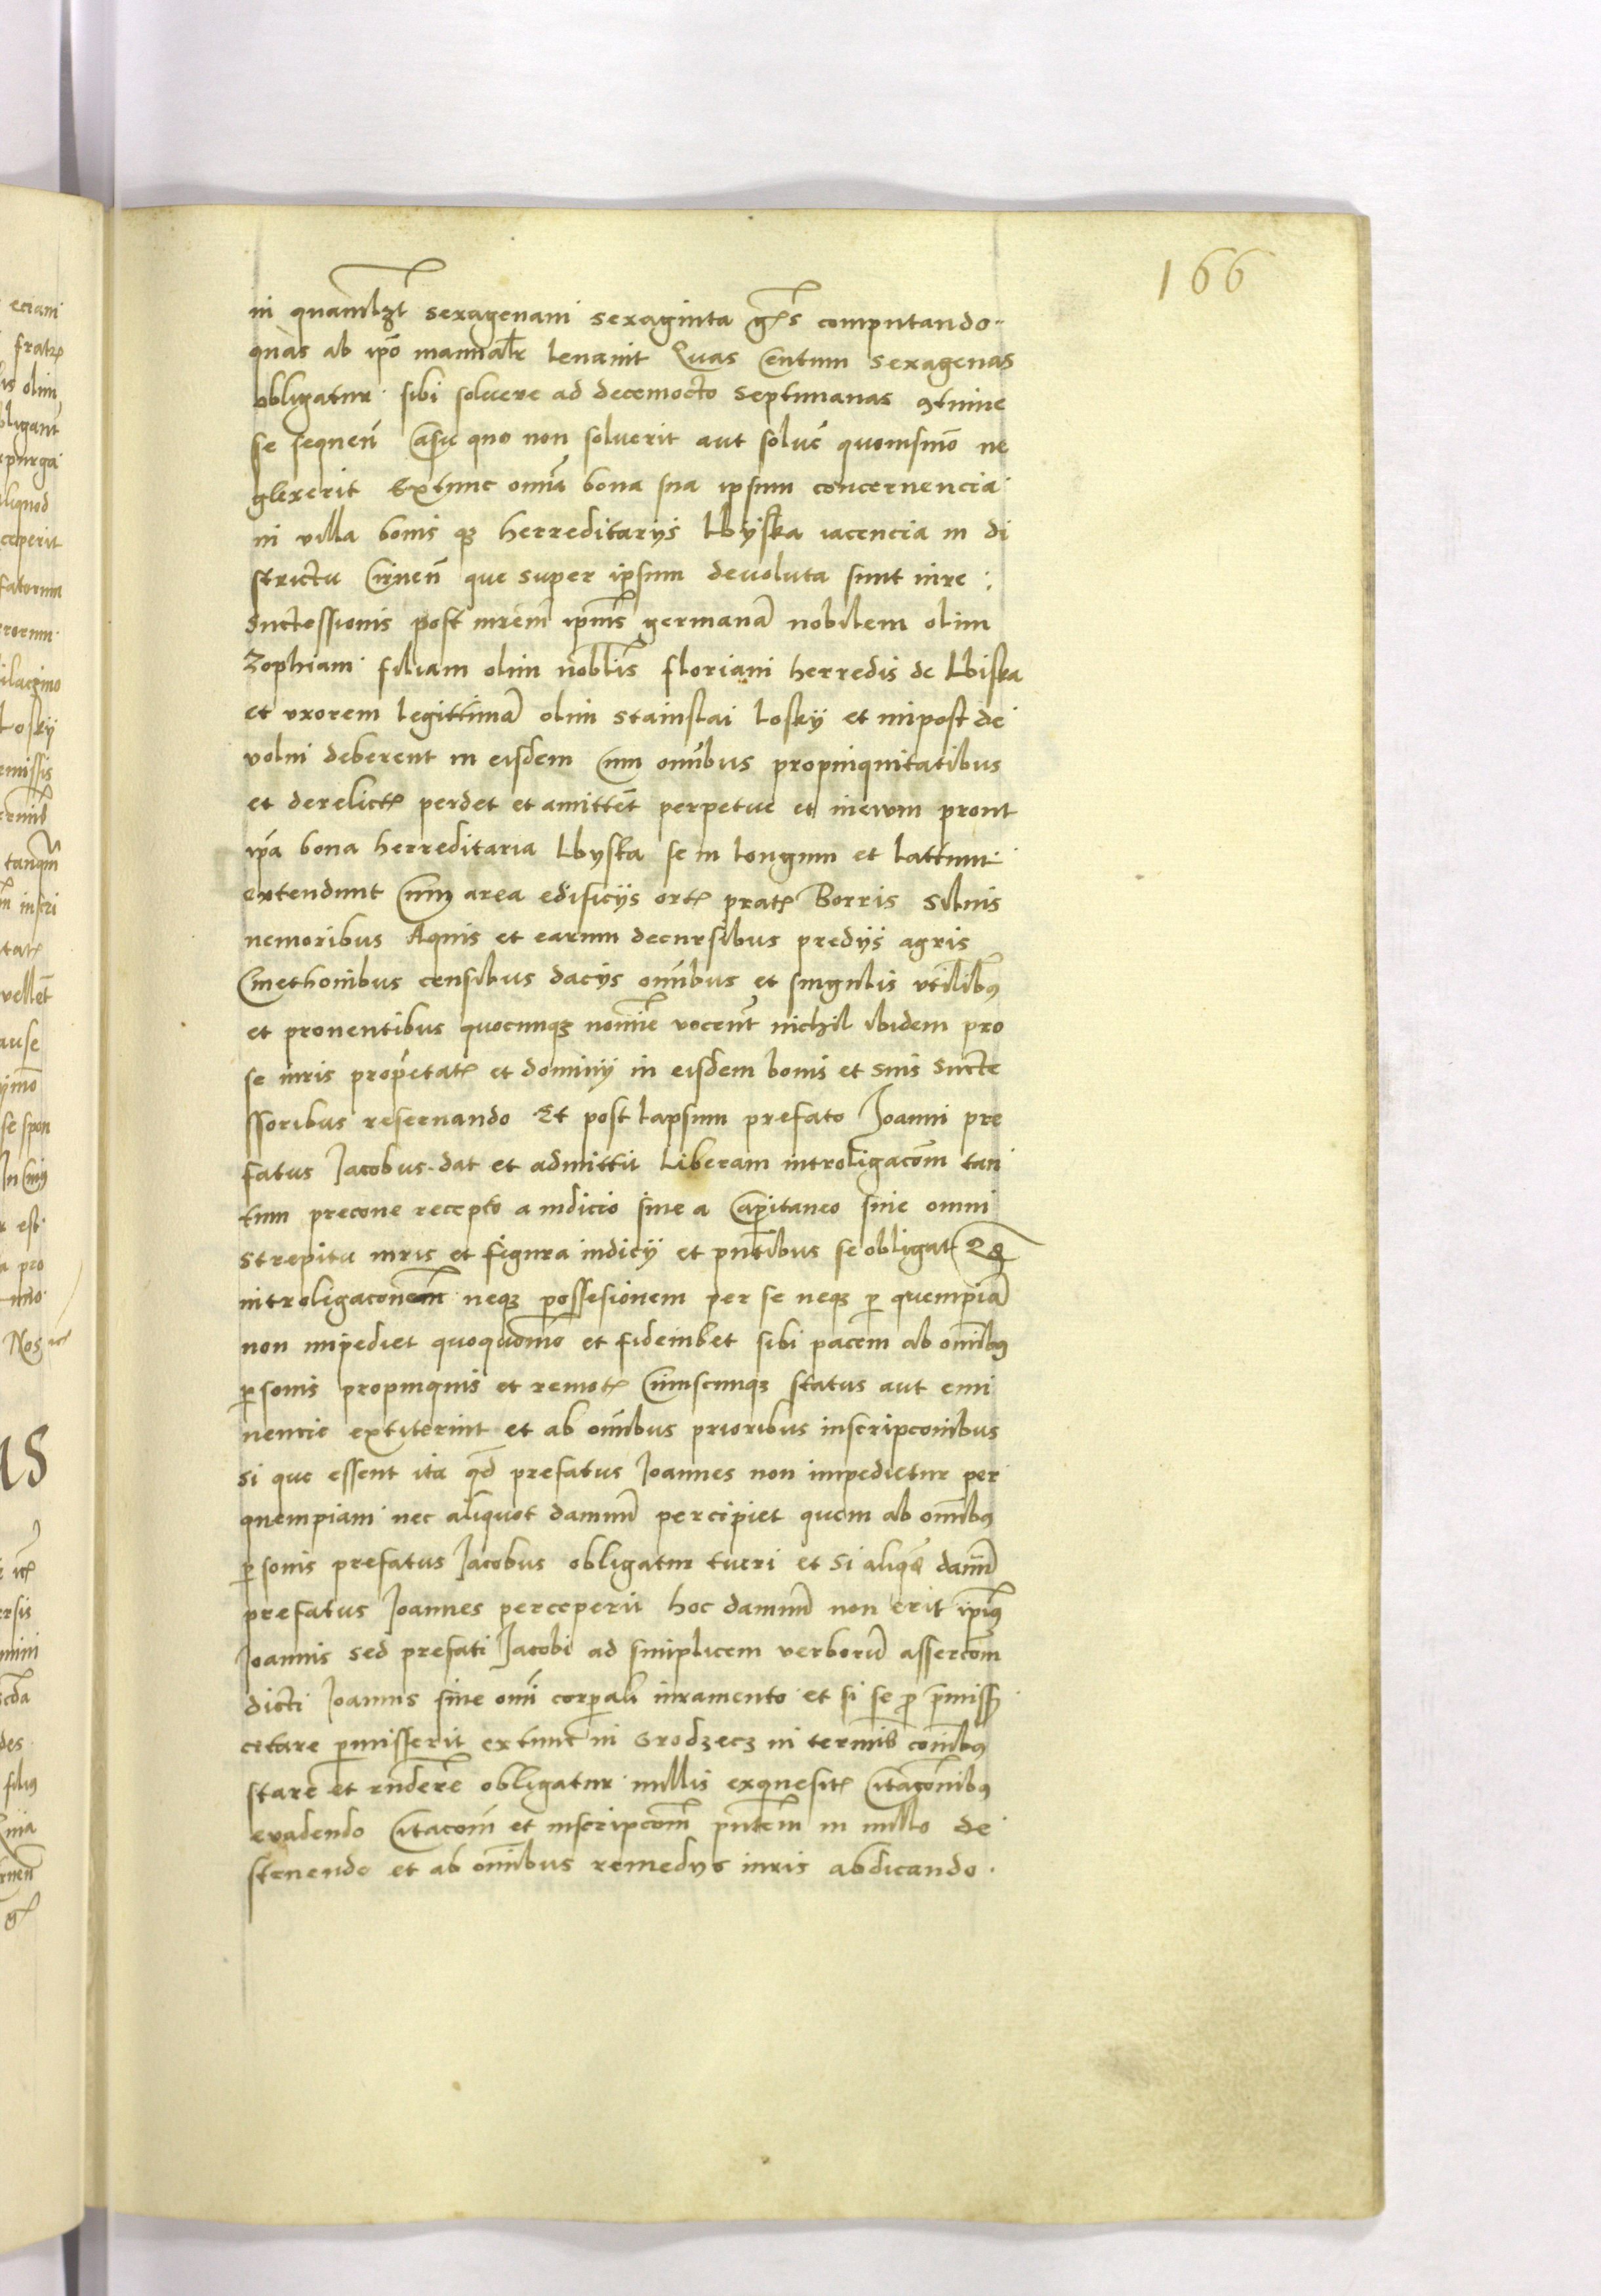 166
in quamlzt sexagenam sexaginta gs computando
quas ab ipo manualr leuauit Quas Centum sexagenas
obligatur sibi soluere ad decemocto septimanas 9tinue
se sequen Casu quo non soluerit aut solue quouismo ne
glexerit Extunc omia bona sua ipsum concernencia
in villa bonis q3 herreditarijs Lbyska iacencia in di
strictu Cirnen que super ipsum deuoluta sunt iure
Suctessionis post mrem ipius germana nobilem olim
Zophiam filiam olim noblis floriani herredis de Lbiska
et vxorem legittima olim Stainslai Losky et inpost de
volui deberent in eisdem Cum omibus propinquitatibus
et derelict perdet et amittet perpetue et ineuum prout
ipa bona herreditaria Lbyska se in longum et lattum
extendunt Cum area edificijs ort prat Borris Siluis
nemoribus Aquis et earum decursibus predijs agris
Cmethonibus censibus dacijs omibus et singulis vtilib9
et prouentibus quocunq3 nomie vocent nichil ibidem pro
se iuris proprietat et dominij in eisdem bonis et suis Sucte
ssoribus reseruando Et post lapsum prefato Joanni pre
fatus Jacobus dat et admittit Liberam introligacom tan
tum precone recepto a iudicio siue a Capitaneo sine omni
strepitu iuris et figura iudicij et pntibus se obligat Qd
introligaconem neq3 possesionem per se neq3 p quempia
non inpediet quoquomo et fideiubet sibi pacem ab omib9
psonis propinquis et remot Cuiuscunq3 status aut emi
nencie extiterint et ab omibus prioribus inscripconibus
si que essent ita qd prefatus Joannes non impedietur per
quempiam nec aliquot damnu percipiet quem ab omib9
psonis prefatus Jacobus obligatur tueri et Si aliqd damnu
prefatus Joannes perceperit hoc damnu non erit ipius
Joannis sed prefati Jacobi ad simplicem verboru assercom
dicti Joannis sine omi corpali iuramento et si se pro pmiss
citare pmisserit extunc in Grodzecz in termis comib9
stare et rndere obligatur nullis exquesit Citaconib9
euadendo Citacom et inscripcom pntem in nullo de
stenendo et ab omibus remedijs iuris abdicando